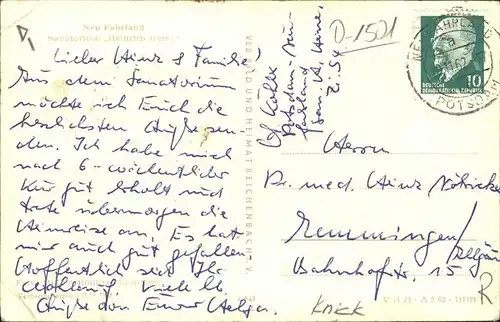 Neu Fahrland
Sanatorium „Heinrich Heine"
Lieber Heinz & Familie!
Aus dem Sanatorium
möchte ich Euch die
herzlichsten Grüße sen-
den. Ich habe mich
nach 6-wöchentlicher
Kur gut erholt und
trete übermorgen die
Heimreise an. Es hat
mir auch gut gefallen
Hoffentlich seid Ihr
wohlauf. Viele lb.
Grüße von Eurer Helga.
VEB BILD UND HEIMAT REICHENBACH I. V.
Potsdam-Neu-
fahrland
San. H. Heine
Zi. 54
D-1501
NEU FAHRLAND
POTSDAM
10
DEUTSCHE
DEMOKRATISCHE REPUBLIK
Herrn
Dr. med. Heinz
Memmingen/
Allgäu
Bahnhofstr. 15
R
Knick
DDR